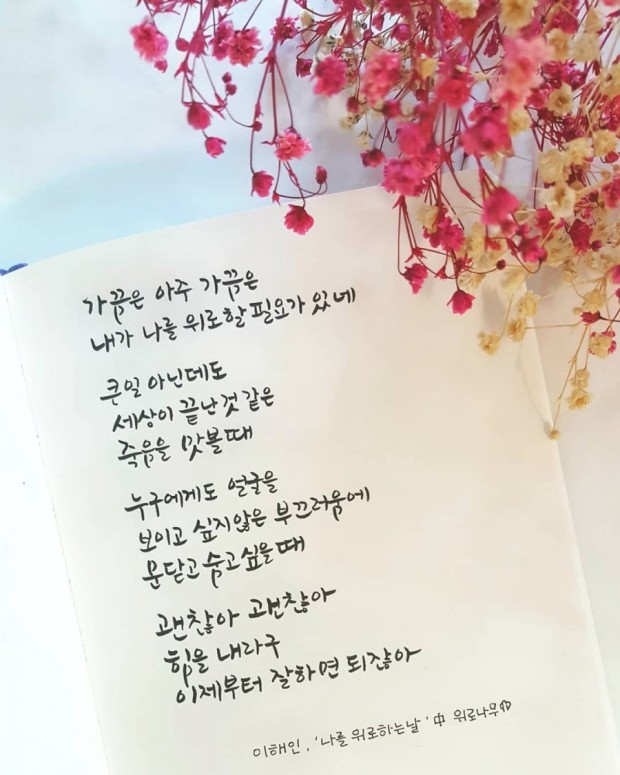 가끔은 아주 가끔은
내가 나를 위로할 필요가 있네
큰일 아닌데도
세상이 끝난것 같은
죽음을 맛볼때
누구에게도 얼굴을
보이고 싶지않은 부끄러움에
문닫고 숨고싶을때
괜찮아 괜찮아
힘을 내라구
이제부터 잘하면 되잖아
이해인, '나를 위로하는날' 中 위로나무